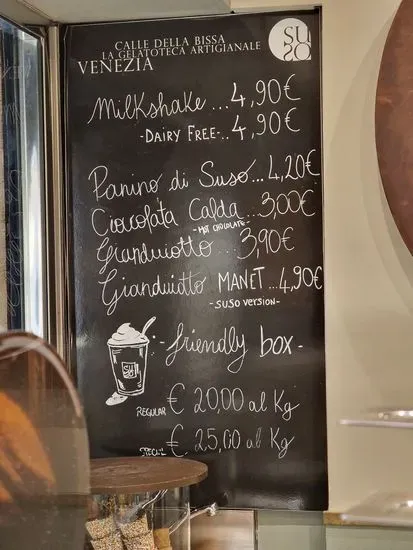 CALLE DELLA BISSA
LA GELATOTECA ARTIGIANALE
VENEZIA
SU
SO
Milkshake ...4,90€
-DAIRY FREE-..4,90€
Panino di Suso...4,20€
Cioccolata Calda...3,00€
-HOT CHOCOLATE-
Gianduiotto...3,90€
Gianduiotto MANET...4,90€
-SUSO VERSION-
-friendly box-
SU
SO
REGULAR € 20,00 al Kg
SPECIAL € 25,00 al Kg